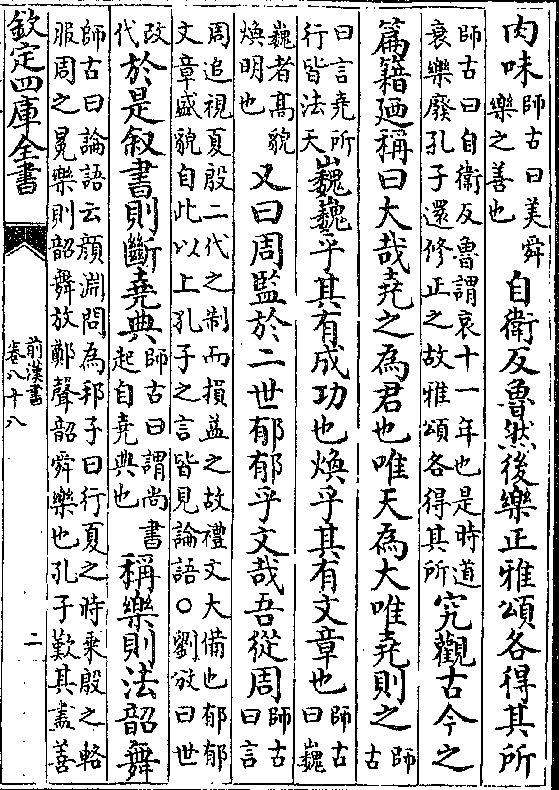 肉味師古曰美舜樂之善也自衛反魯然後樂正雅頌各得其所
師古曰自衛反魯謂哀十一年也是時道
衰樂廢孔子還修正之故雅頌各得其所究觀古今之
篇籍廼稱曰大哉堯之為君也唯天為大唯堯則之師古
曰言堯所行皆法天巍巍乎其有成功也煥乎其有文章也師古曰巍
巍者髙貌煥明也又曰周監於二世郁郁乎文哉吾從周師古曰言
周追視夏殷二代之制而損益之故禮文大備也郁郁
文章盛貌自此以上孔子之言皆見論語○劉攽曰世
改代於是叙書則斷堯典師古曰謂尚書起自堯典也稱樂則法韶舞
師古曰論語云顔淵問為邦子曰行夏之時乘殷之輅
服周之冕樂則韶舞放鄭聲韶舜樂也孔子歎其盡善
欽定四庫全書
前漢書
卷八十八
二